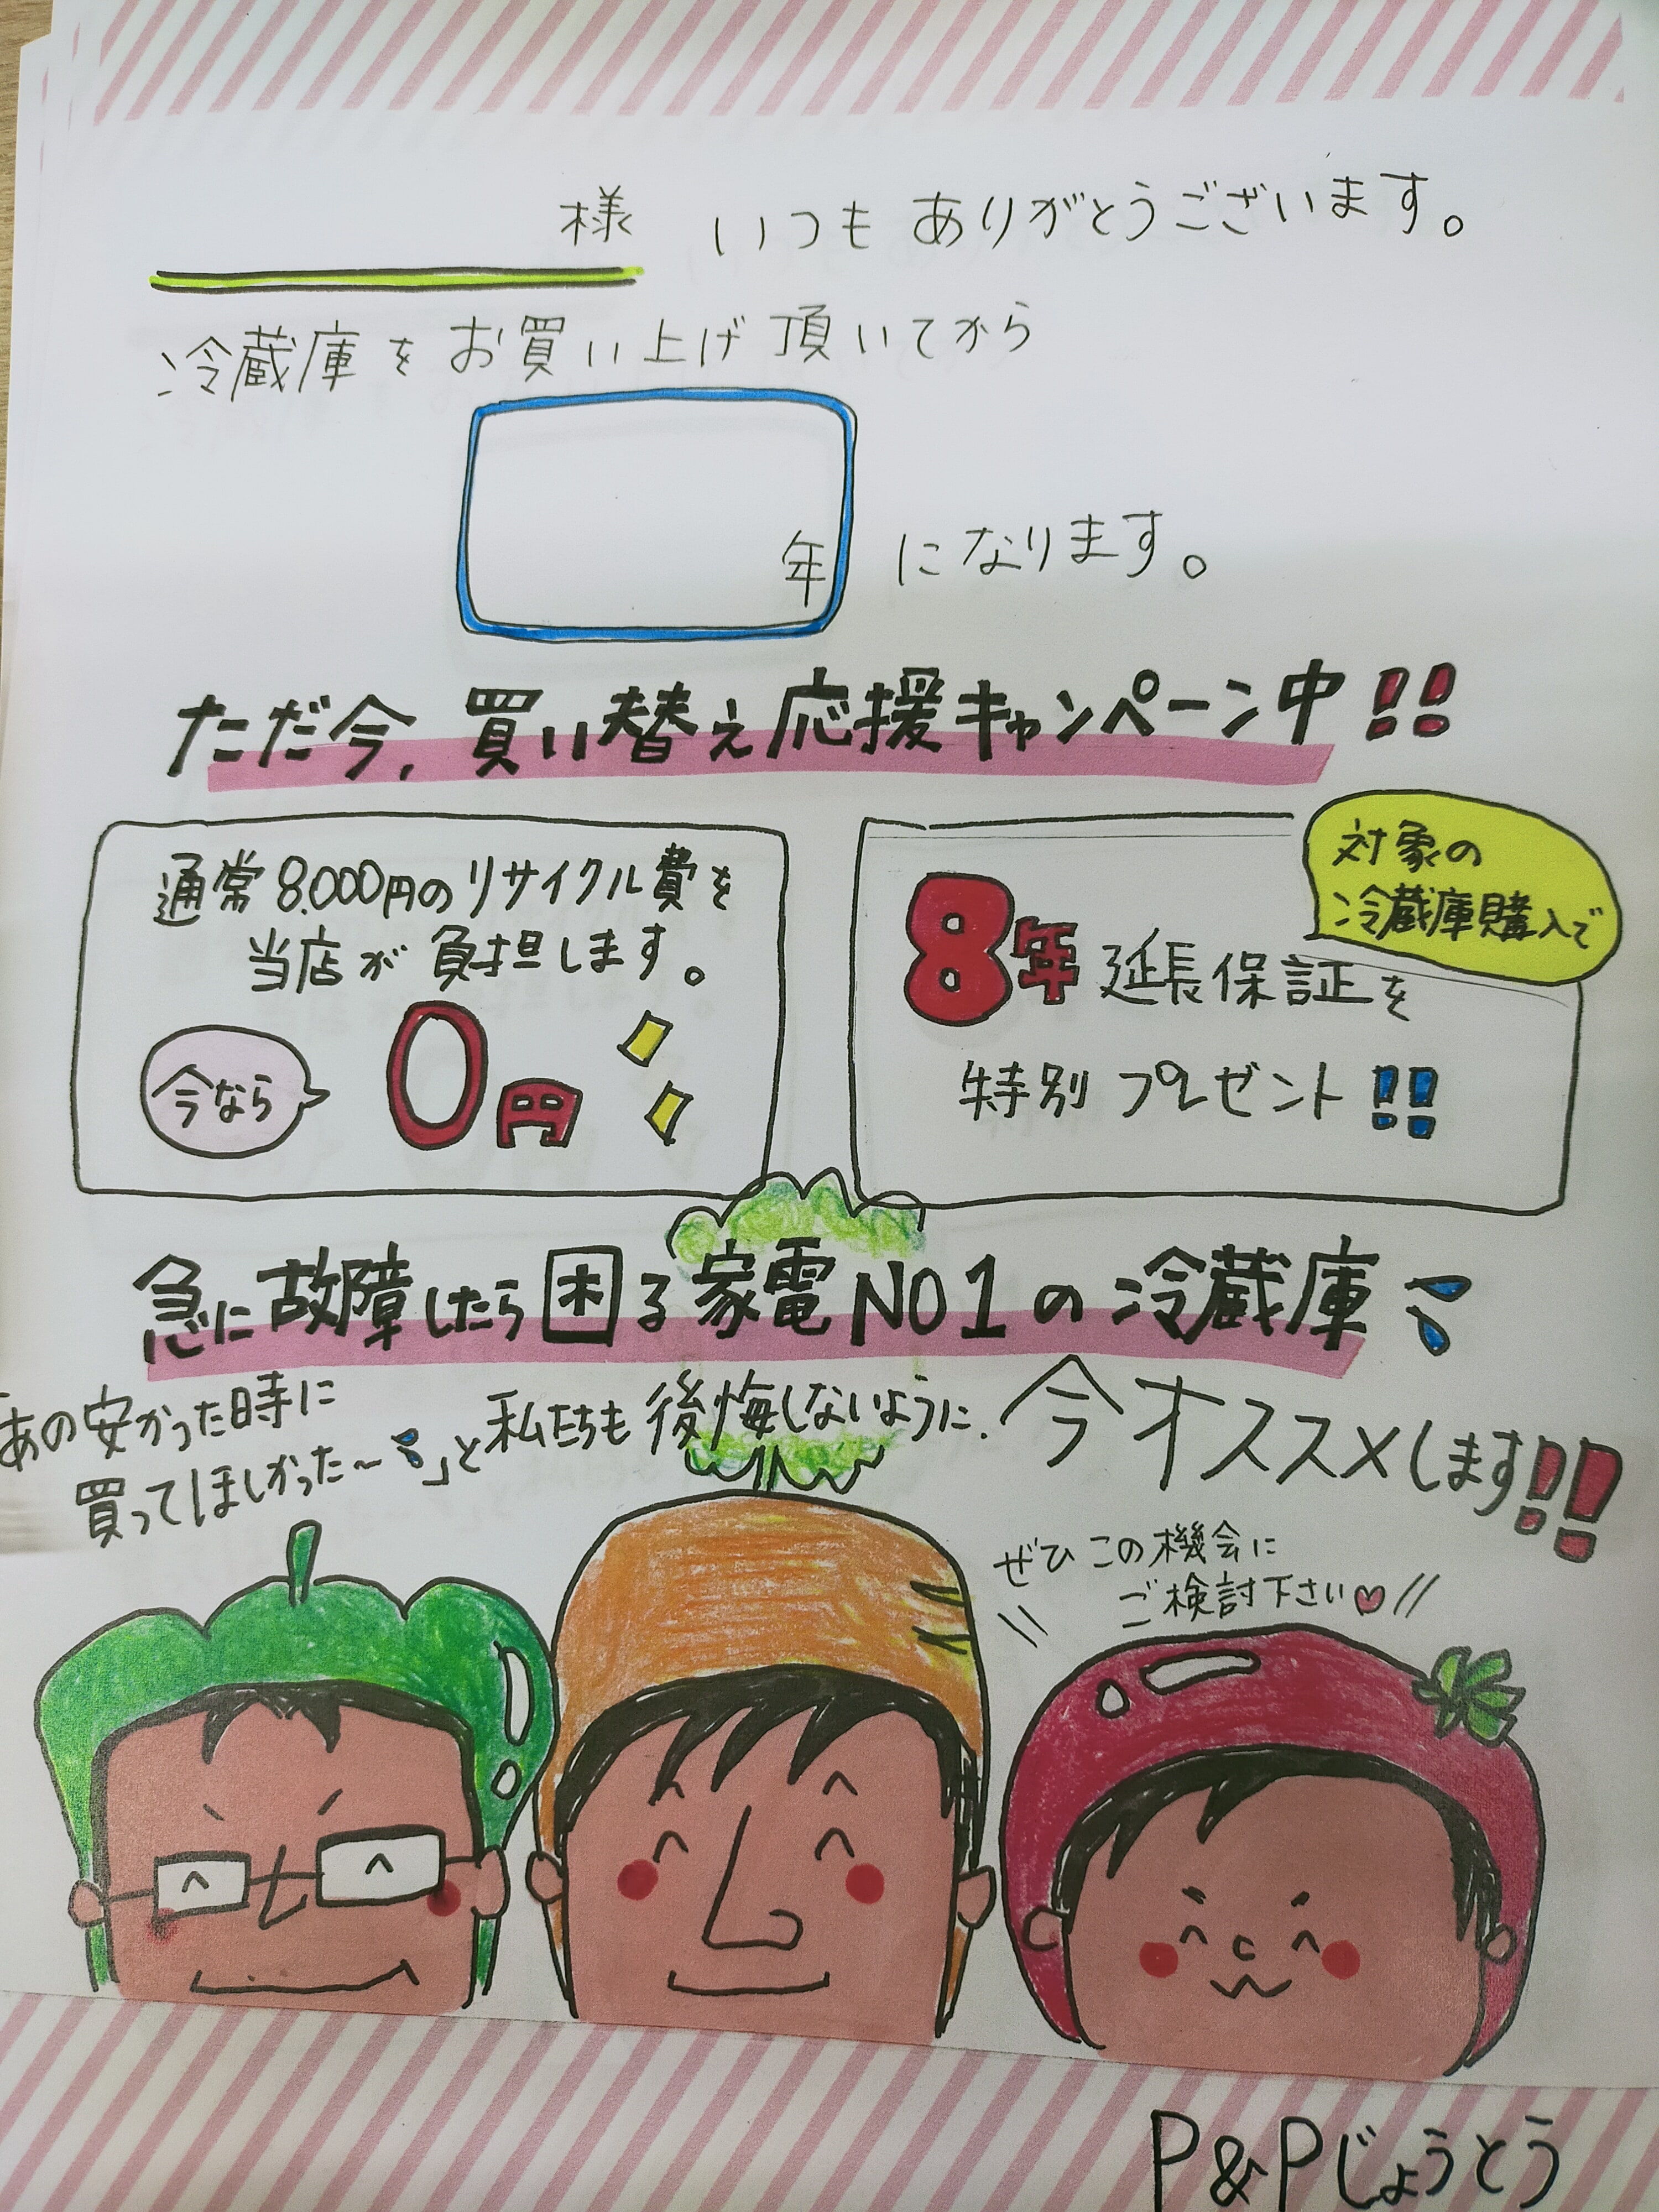 様 いつもありがとうございます。
冷蔵庫をお買い上げ頂いてから
年 になります。
ただ今、買い替え応援キャンペーン中!!
通常8,000円のリサイクル費を
当店が負担します。
今なら 0円
対象の
冷蔵庫購入で
8年延長保証を
特別プレゼント!!
急に故障したら困る家電NO1の冷蔵庫
あの安かった時に
買ってほしかった〜」と私たちも後悔しないように、今オススメします!!
ぜひこの機会に
ご検討下さい♥
P&Pじょうとう